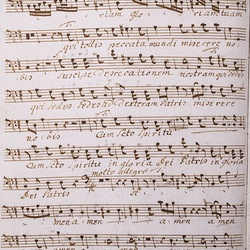 riam glo riam tuam
qui tollis peccata mundi miserere no
bis Suscipe deprecationem nostram qui
qui sedes sedes ad dexteram Patris miserere
no bis Cum Scto Spiritu
Cum Scto Spiritu in gloria Dei Patris in gloria
molto allegro
dei Patris
men a men a men a men